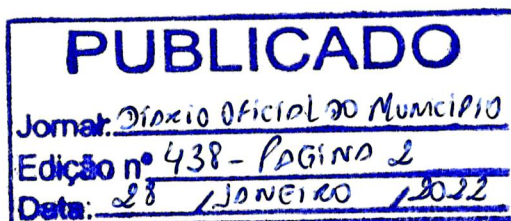 PUBLICADO
Jornal: Diário Oficial do Município
Edição nº 438 - PÁGINA 2
Data: 28 / JANEIRO / 2022